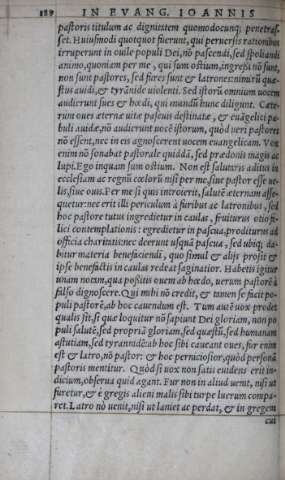 188 IN EVANG. IOANNIS
pastoris titulum ac dignitatem quomodocunq; penetras-
set. Huiusmodi quotquot fuerunt, qui peruersis rationibus
irruperunt in ouile populi Dei, nõ pascendi, sed spoliandi
animo, quoniam per me, qui sum ostium, ingressi nõ sunt,
non sunt pastores, sed fures sunt & latrones: nimirũ quæ-
stus auidi, & tyrãnide uiolenti. Sed istorũ omnium uocem
audierunt sues & hœdi, qui mundi huic diligunt. Cæte-
rum oues æternæ uitæ pascuis destinatæ, & euãgelici pa-
buli auidæ, nõ audierunt uocẽ istorum, quòd ueri pastores
nõ essent, nec in eis agnoscerent uocem euangelicam. Vox
enim nõ sonabat pastorale quiddã, sed prædonis magis ac
lupi. Ego inquam sum ostium. Non est salutaris aditus in
ecclesiam ac regnũ cœlorũ nisi per me, siue pastor esse ue-
lis, siue ouis. Per me si quis introierit, salutẽ æternam asse-
quetur: nec erit illi periculum à furibus ac latronibus, sed
hoc pastore tutus ingredietur in caulas, fruiturus otio fi-
lici contemplationis: egredietur in pascua, proditurus ad
officia charitatis: nec deerunt usquã pascua, sed ubiq; da-
bitur materia beneficiendi, quo simul & alijs prosit &
ipse benefactis in caulas redeat saginatior. Habetis igitur
unam notam, qua possitis ouem ab hœdo, uerum pastorẽ à
falso dignoscere. Qui mihi nõ credit, & tamen se facit po-
puli pastorẽ, ab hoc cauendum est. Tum autẽ uox prodet
qualis sit, si quæ loquitur nõ sapiunt Dei gloriam, non po
puli salutẽ, sed propriã gloriam, sed quæstũ, sed humanam
astutiam, sed tyrannidẽ: ab hoc sibi caueant oues, fur enim
est & latro, nõ pastor: & hoc perniciosior, quòd personã
pastoris mentitur. Quòd si uox non satis euidens erit in-
dicium, obserua quid agant. Fur non in aliud uenit, nisi ut
furetur, & è gregis alieni malis sibi turpe lucrum compa-
ret. Latro nõ uenit, nisi ut laniet ac perdat, & in gregem
cui